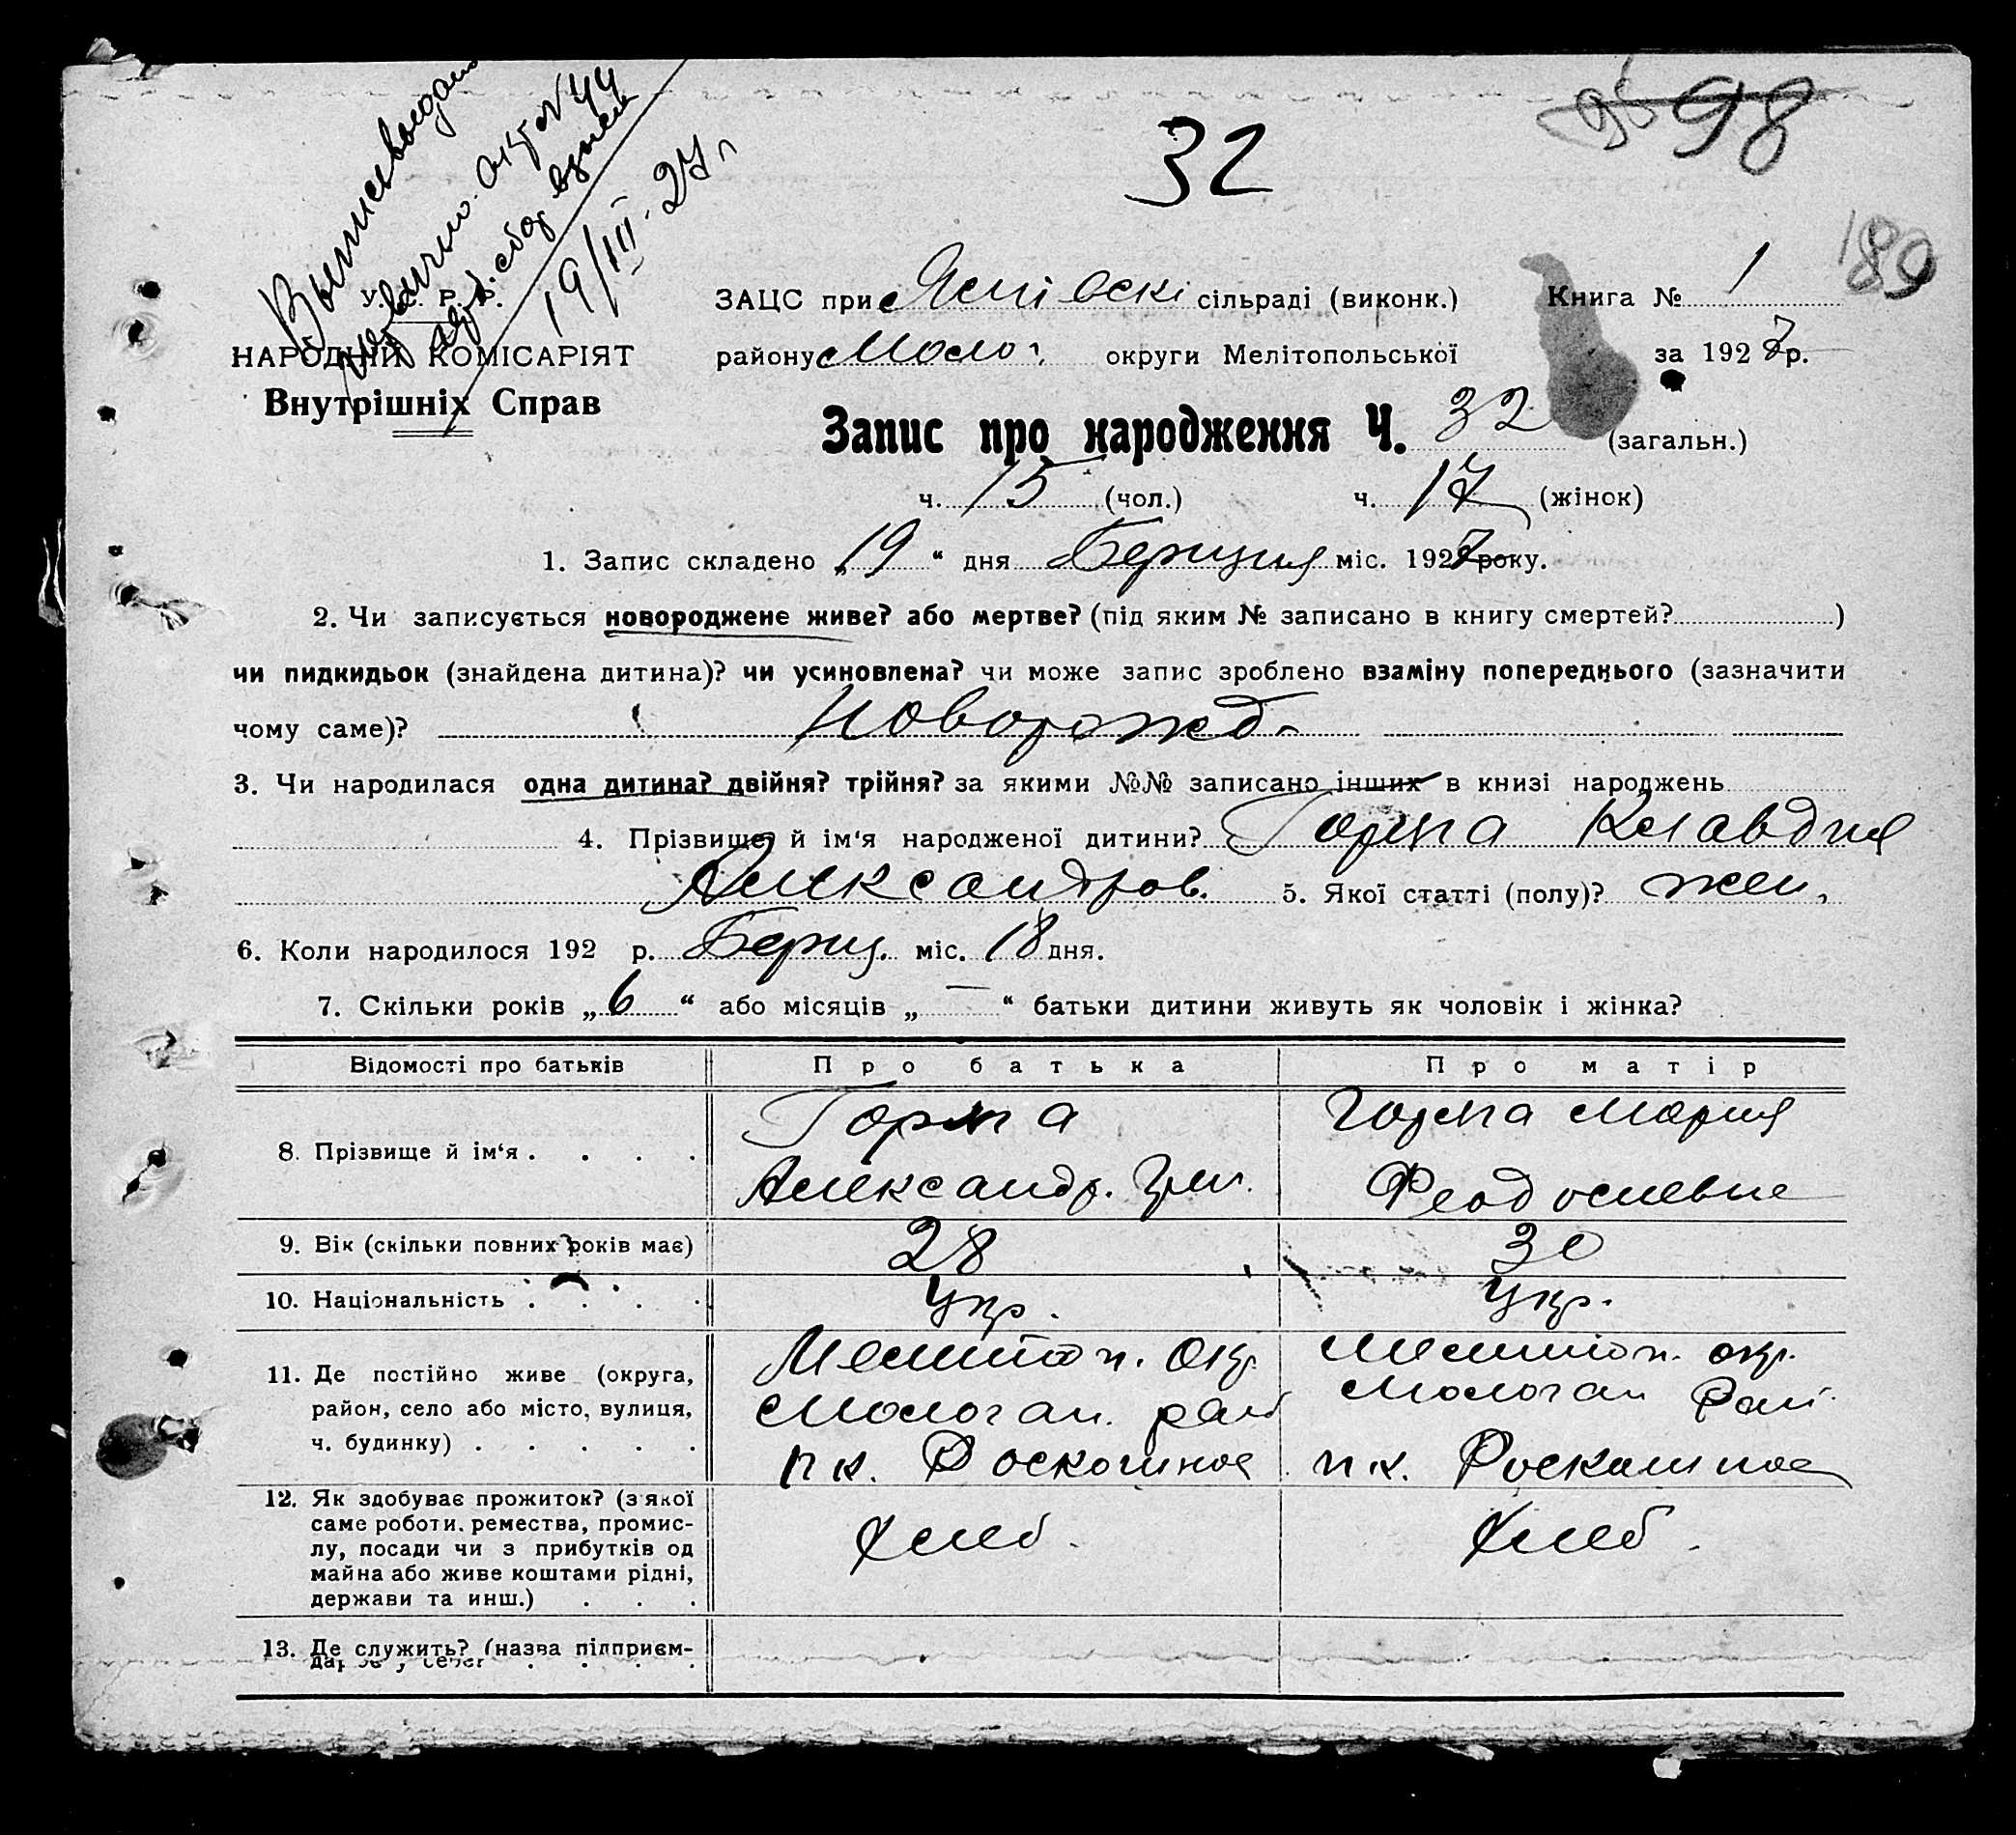 98
32
189
19/III-27 г
У. С. Р. Р.
НАРОДНІЙ КОМІСАРІЯТ
Внутрішніх Справ
ЗАЦС при сільраді (виконк.) Книга № 1
району Молоч. округи Мелітопольської за 1927 р.
Запис про народження Ч. 32 (загальн.)
ч. 15 (чол.) ч. 17 (жінок)
1. Запис складено „19“ дня Берцня міс. 1927 року.
2. Чи записується новороджене живе? або мертве? (під яким № записано в книгу смертей? )
чи пидкидьок (знайдена дитина)? чи усиновлена? чи може запис зроблено взаміну попереднього (зазначити
чому саме)?Новорожд.
3. Чи народилася одна дитина? двійня? трійня? за якими №№ записано інших в книзі народжень
4. Прізвище й ім‘я народженої дитини? Горпа Клавдия
Александров. 5. Якої статті (полу)? жен.
6. Коли народилося 192 р. Берц. міс. 18 дня.
7. Скільки років „6“ або місяців „—“ батьки дитини живуть як чоловік і жінка?
Відомості про батьків Про батька Про матір
8. Прізвище й ім‘я . . . . Горпа Горпа Мария
Александр. Феодосиевна
9. Вік (скільки повних років має) 28 30
10. Національність . . . . Укр. Укр.
11. Де постійно живе (округа, Мелитоп. Окр. Мелитоп. окр.
район, село або місто, вулиця, Молочан. рай Молочан Рай.
ч. будинку) . . . . . Роскошное Роскошное
12. Як здобуває прожиток? (з якої
саме роботи, ремества, промис-
лу, посади чи з прибутків од Хлеб. Хлеб.
майна або живе коштами рідні,
держави та инш.) . . .
13. Де служить? (назва підприєм-